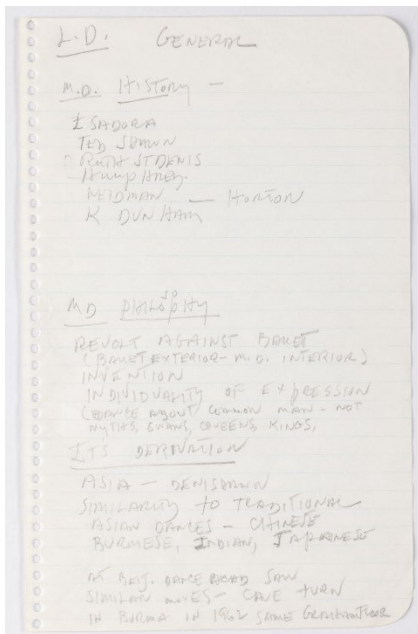 L.D. GENERAL
M.D. HISTORY —
ISADORA
TED SHAWN
RUTH ST DENIS
HUMPHREY
WEIDMAN — HORTON
K DUNHAM
MD PHILOSOPHY
REVOLT AGAINST BALLET
(BALLET EXTERIOR - M.D. INTERIOR)
INVENTION
INDIVIDUALITY OF EXPRESSION
(DANCE ABOUT COMMON MAN - NOT
MYTHS, SWANS, QUEENS, KINGS,
ITS DERIVATION
ASIA — DENISHAWN
SIMILARITY TO TRADITIONAL
ASIAN DANCES - CHINESE
BURMESE, INDIAN, JAPANESE
AT BEIJ. DANCE ACAD SAW
SIMILAR MOVES - CAVE TURN
IN BURMA IN 1962 SAME GRAHAM FLOOR